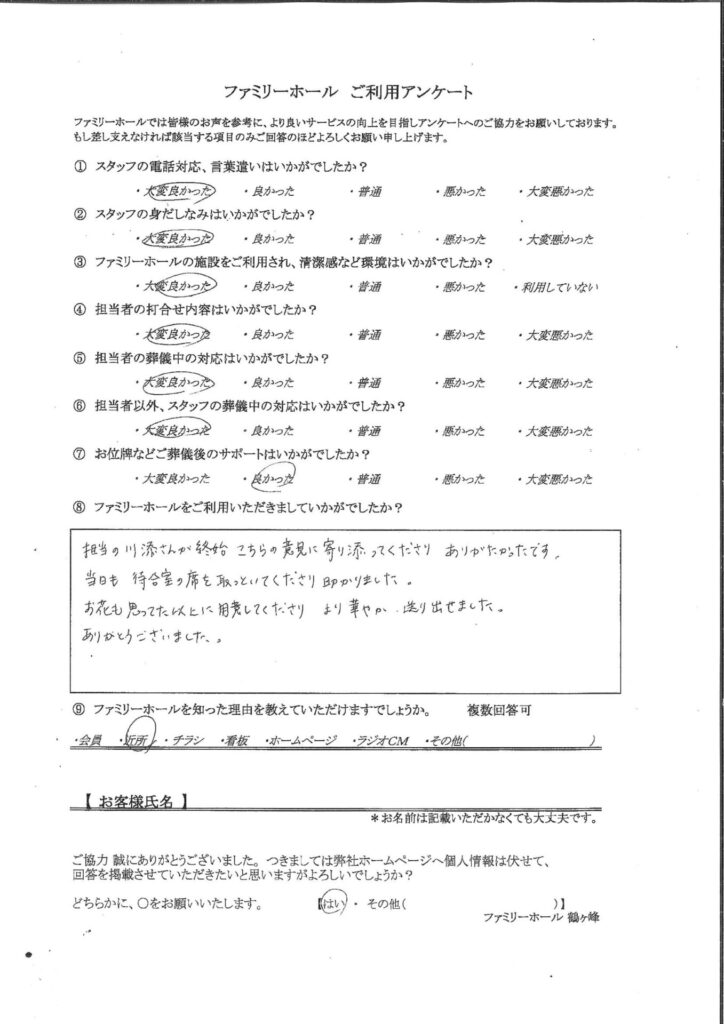 ファミリーホール ご利用アンケート
ファミリーホールでは皆様のお声を参考に、より良いサービスの向上を目指しアンケートへのご協力をお願いしております。
もし差し支えなければ該当する項目のみご回答のほどよろしくお願い申し上げます。
① スタッフの電話対応、言葉遣いはいかがでしたか？
・大変良かった ・良かった ・普通 ・悪かった ・大変悪かった
② スタッフの身だしなみはいかがでしたか？
・大変良かった ・良かった ・普通 ・悪かった ・大変悪かった
③ ファミリーホールの施設をご利用され、清潔感など環境はいかがでしたか？
・大変良かった ・良かった ・普通 ・悪かった ・利用していない
④ 担当者の打合せ内容はいかがでしたか？
・大変良かった ・良かった ・普通 ・悪かった ・大変悪かった
⑤ 担当者の葬儀中の対応はいかがでしたか？
・大変良かった ・良かった ・普通 ・悪かった ・大変悪かった
⑥ 担当者以外、スタッフの葬儀中の対応はいかがでしたか？
・大変良かった ・良かった ・普通 ・悪かった ・大変悪かった
⑦ お位牌などご葬儀後のサポートはいかがでしたか？
・大変良かった ・良かった ・普通 ・悪かった ・大変悪かった
⑧ ファミリーホールをご利用いただきましていかがでしたか？
担当の川添さんが終始こちらの意見に寄り添ってくださり ありがたかったです。
当日も 待合室の席を取っといてくださり助かりました。
お花も思ってた以上に用意してくださり より華やか 送り出せました。
ありがとうございました。
⑨ ファミリーホールを知った理由を教えていただけますでしょうか。 複数回答可
・会員 ・近所 ・チラシ ・看板 ・ホームページ ・ラジオCM ・その他( )
【 お客様氏名 】
＊お名前は記載いただかなくても大丈夫です。
ご協力 誠にありがとうございました。つきましては弊社ホームページへ個人情報は伏せて、
回答を掲載させていただきたいと思いますがよろしいでしょうか？
どちらかに、○をお願いいたします。 【はい ・ その他( )】
ファミリーホール 鶴ヶ峰